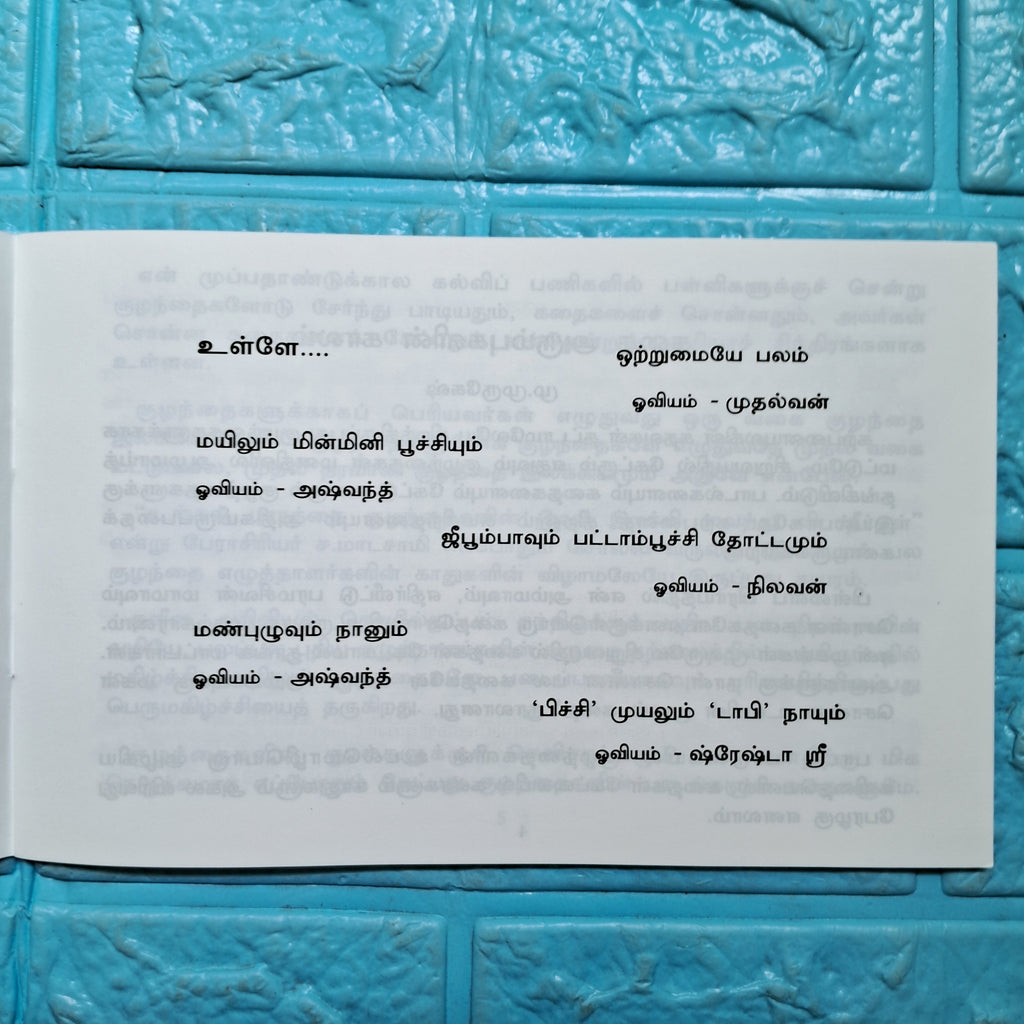 உள்ளே....
ஒற்றுமையே பலம்
ஓவியம் - முதல்வன்
மயிலும் மின்மினி பூச்சியும்
ஓவியம் - அஷ்வந்த்
ஜீபூம்பாவும் பட்டாம்பூச்சி தோட்டமும்
ஓவியம் - நிலவன்
மண்புழுவும் நானும்
ஓவியம் - அஷ்வந்த்
‘பிச்சி’ முயலும் ‘டாபி’ நாயும்
ஓவியம் - ஷ்ரேஷ்டா ஸ்ரீ